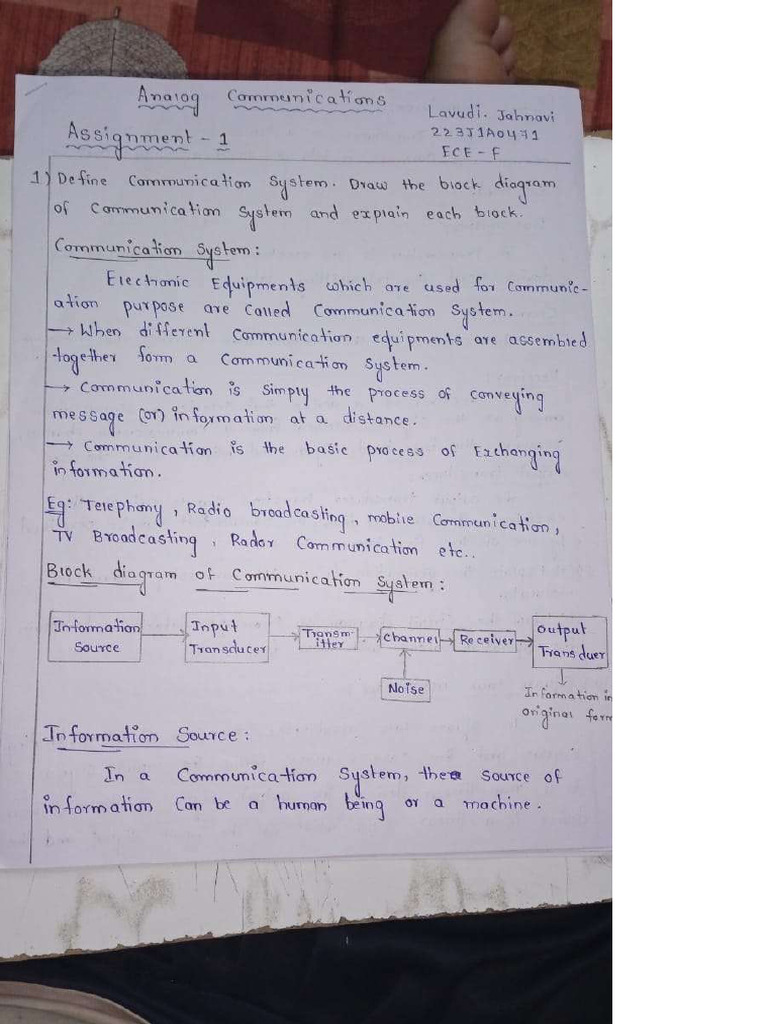 Analog Communications
Lavudi. Jahnavi
Assignment - 1
223J1A0471
ECE - F
1) Define Communication System. Draw the block diagram
of Communication System and explain each block.
Communication System:
Electronic Equipments which are used for Communic-
ation purpose are Called Communication System.
→ When different Communication equipments are assembled
together form a Communication System.
→ Communication is Simply the process of conveying
message (or) information at a distance.
→ Communication is the basic process of Exchanging
information.
Eg: Telephony, Radio broadcasting, mobile Communication,
TV Broadcasting, Radar Communication etc..
Block diagram of Communication System:
Information
Source
Input
Transducer
Transm-
itter
Channel
Receiver
Output
Transduer
Noise
Information in
original form
Information Source:
In a Communication System, the source of
information Can be a human being or a machine.